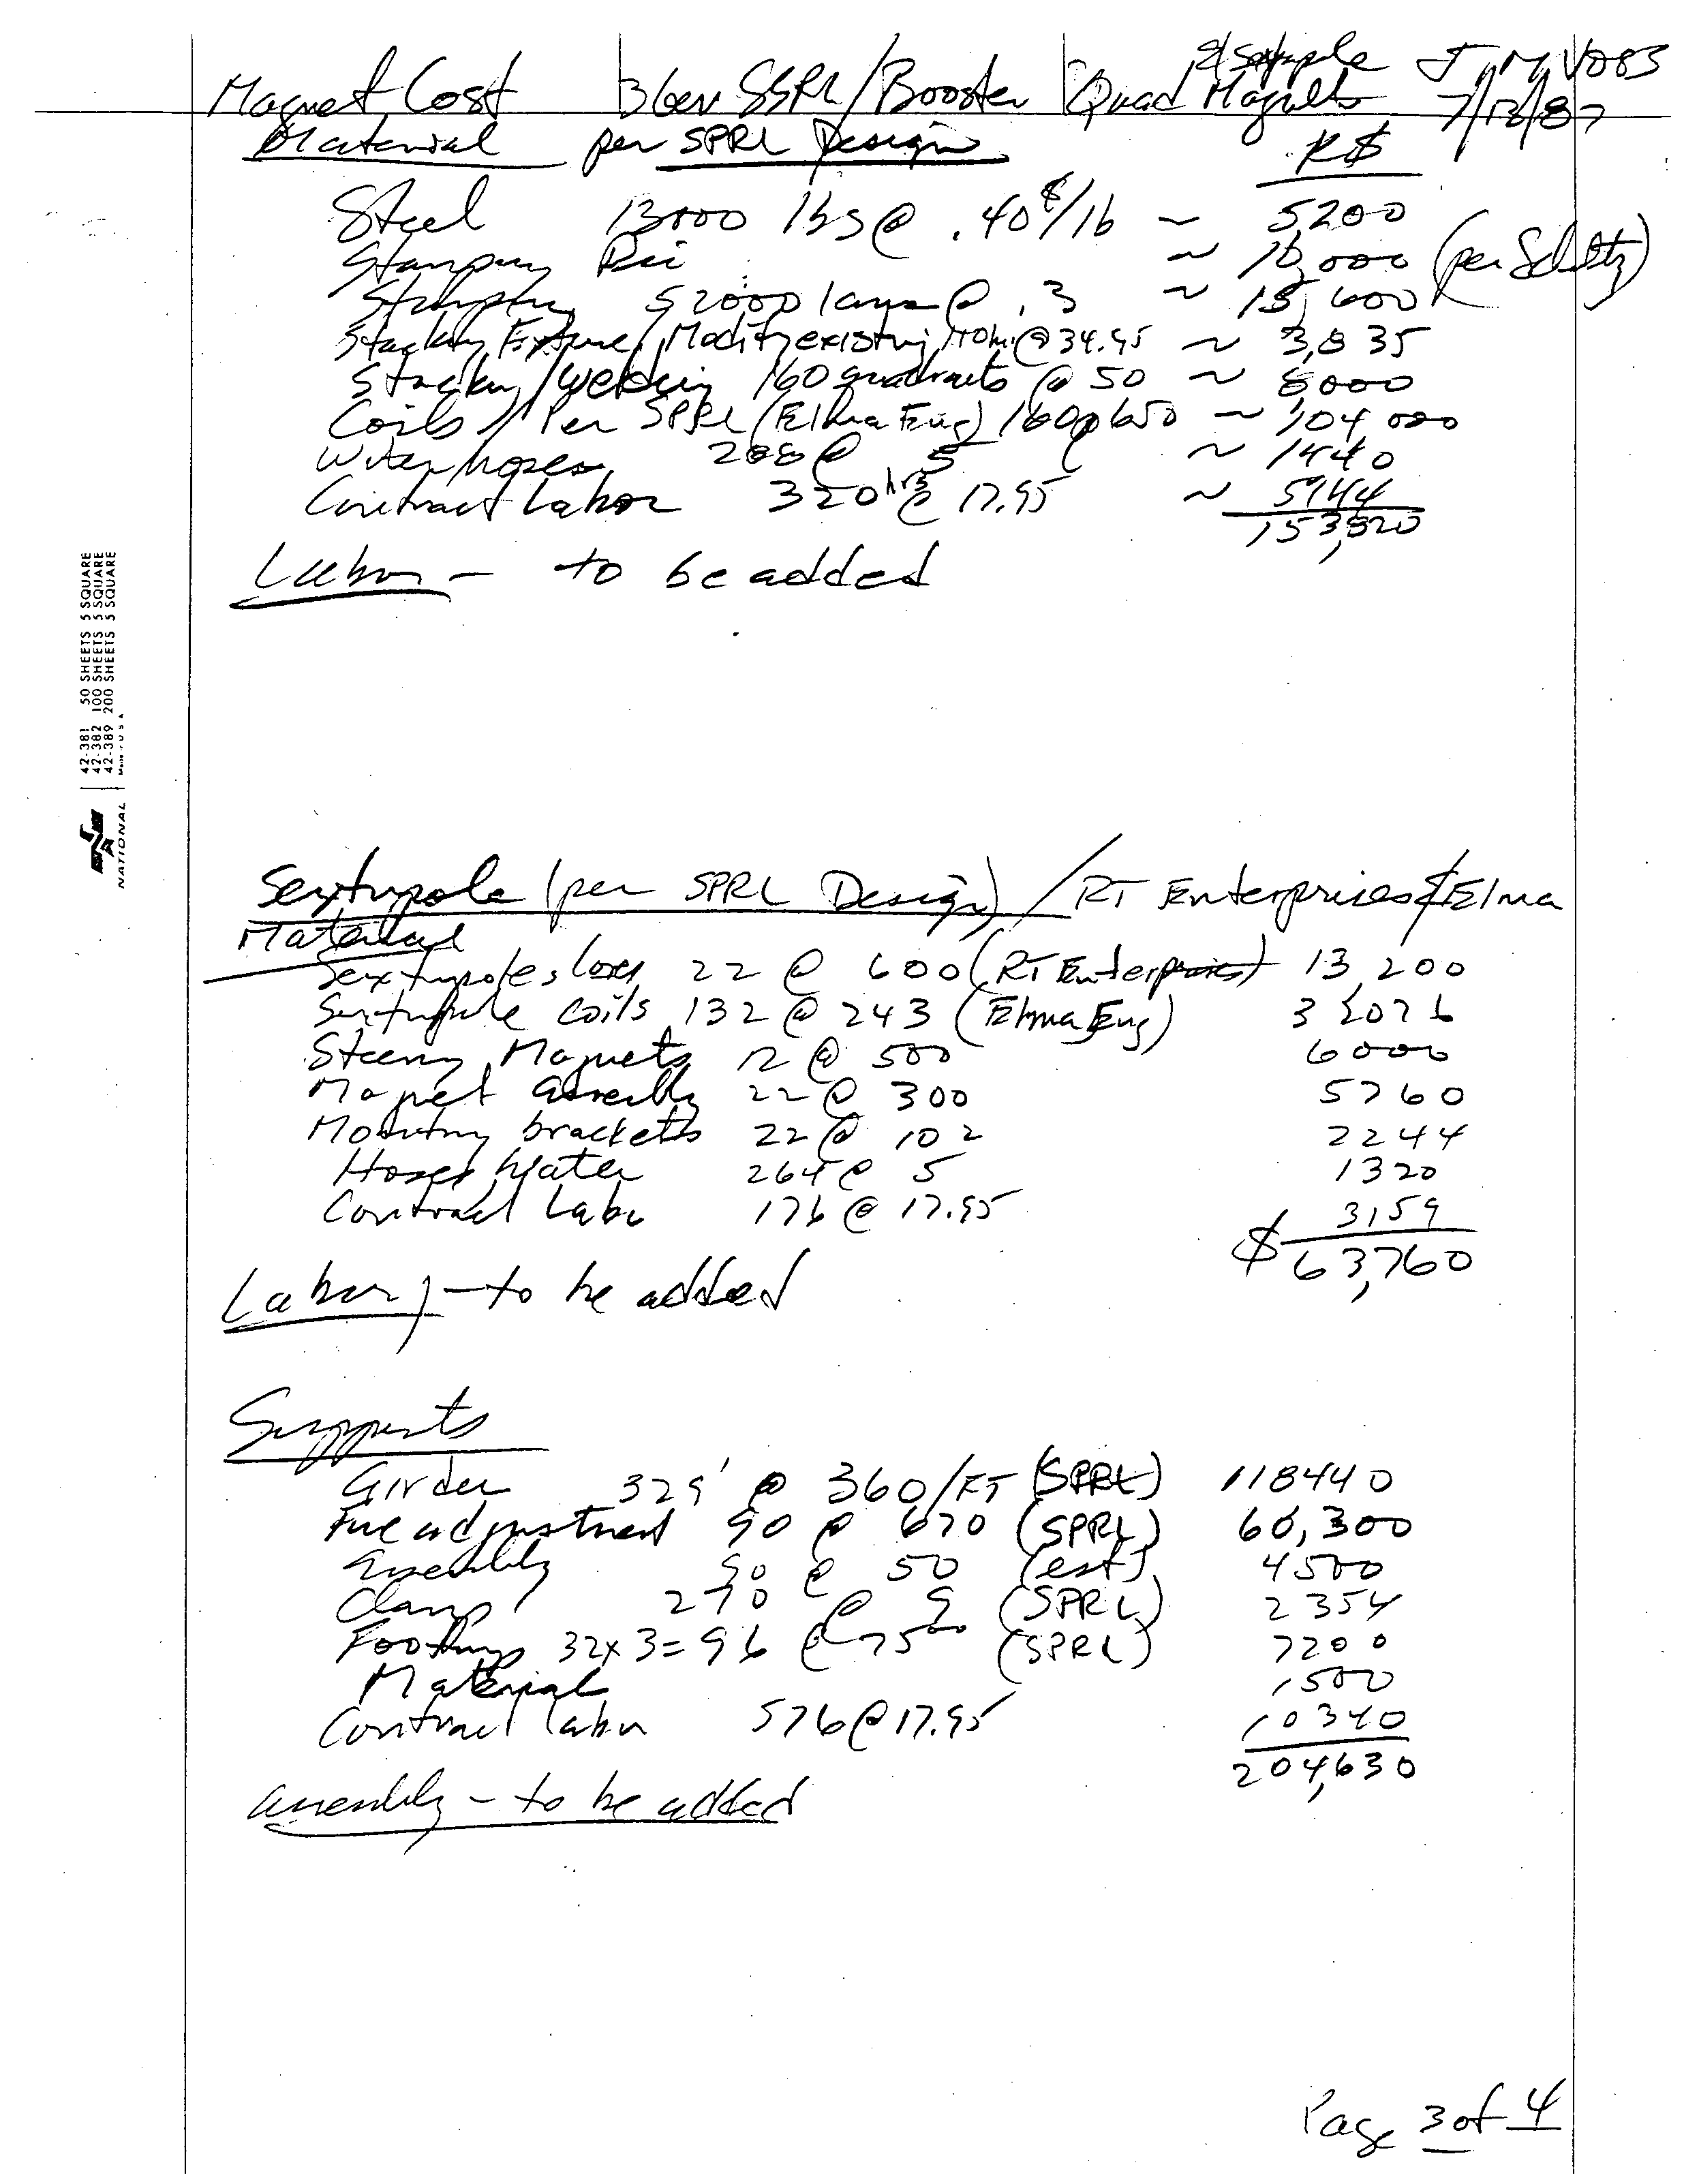 & Sextupole J. M. Voss
Magnet Cost 3Gev SSRL/Booster Quad Magnets 7/12/87
Material per SPRL Design K$
Steel 13000 lbs @ .40¢/lb ~ 5,200
Stamping Die ~ 10,000 (per Schultz)
Stamping 52000 lams @ .3 ~ 15,600
Stacking Fixture/Modify existing 110hr @ 34.95 ~ 3,835
Stacking/Welding 160 quadrants @ 50 ~ 8000
Coils / Per SPRL (Elma Eng) 160@650 ~ 104000
Water hoses 288 @ 5 ~ 1440
Contract Labor 320 hrs @ 17.95 ~ 5744
153,820
Labor - to be added
42-381 50 SHEETS 5 SQUARE
42-382 100 SHEETS 5 SQUARE
42-389 200 SHEETS 5 SQUARE
NATIONAL
Sextupole (per SPRL Design) / RT Enterprises & Elma
Material
Sextupoles 22 @ 600 (RT Enterprises) 13,200
Sextupole coils 132 @ 243 (Elma Eng) 32076
Steering Magnets 12 @ 500 6000
Magnet Assembly 22 @ 300 5760
Mounting brackets 22 @ 102 2244
Hoses Water 264 @ 5 1320
Contract Labor 176 @ 17.95 3159
$ 63,760
Labor, - to be added
Supports
Girder 329' @ 360/FT (SPRL) 118440
Fine adjustment 90 @ 670 (SPRL) 60,300
Assembly 90 @ 50 (est) 4500
Clamp 270 @ 9 (SPRL) 2354
Footings 32x3=96 @ 75 00 (SPRL) 7200
Material 1500
Contract labor 576 @ 17.95 10340
204,630
Assembly - to be added
Page 3 of 4